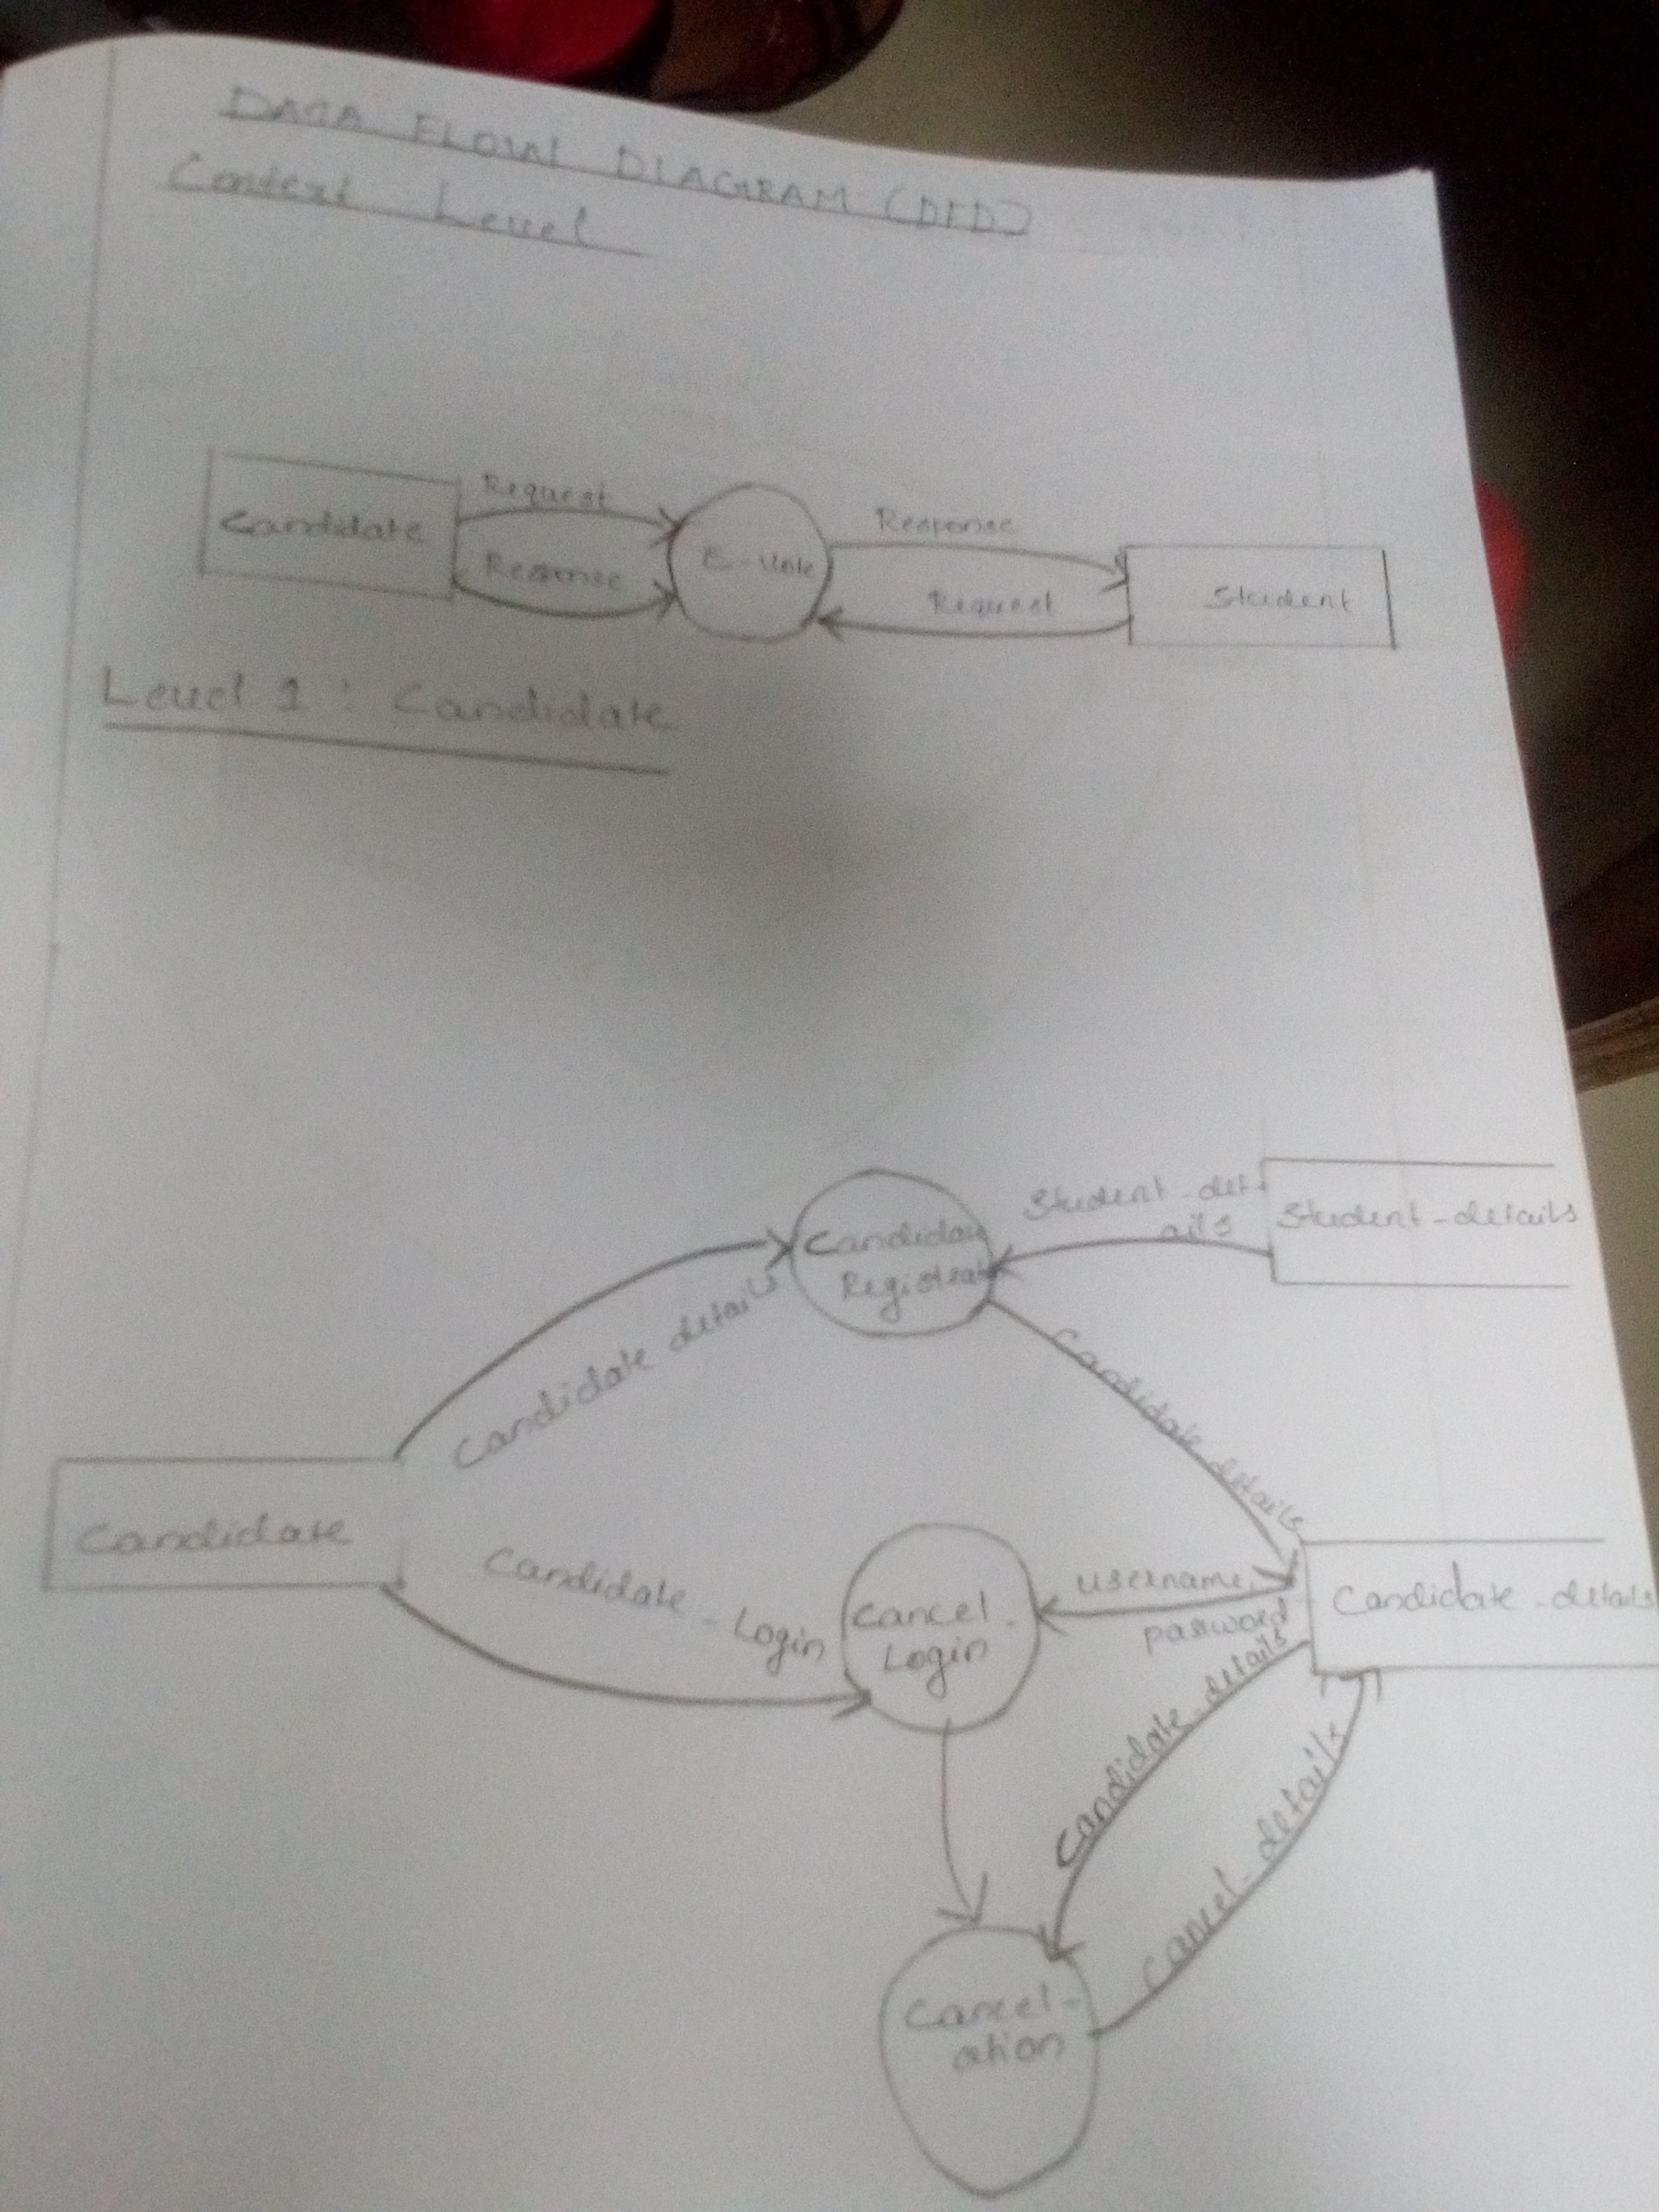 DATA FLOW DIAGRAM (DFD)
Context Level
Candidate
Request
Response
E-Vote
Response
Request
Student
Level 1 : Candidate
Candidate
Registrat
Student_det
ails
Student_details
Candidate details
Candidate details
Candidate
Candidate_Login
Cancel_
Login
username,
password
Candidate_details
Candidate_details
Cancel_details
Cancel-
ation